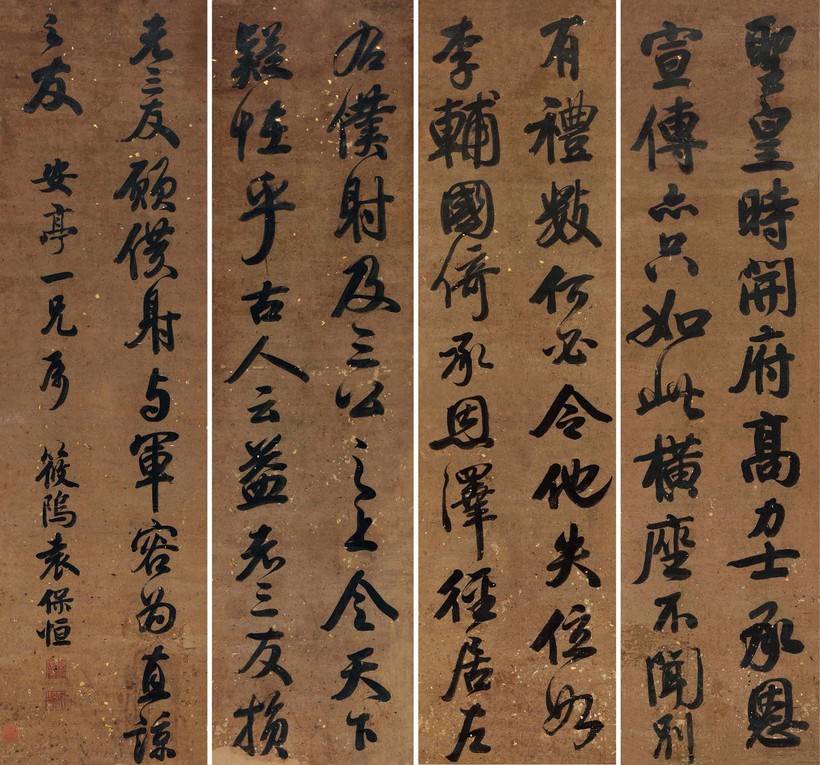 聖皇時開府高力士承恩
宣傳亦只如此橫座不聞別
有禮數何必令他失位如
李輔國倚承恩澤徑居左
右僕射及三公之上令天下
疑怪乎古人云益者三友損
者三友願僕射与軍容為直諒
之友
安亭一兄属
筱隖袁保恒